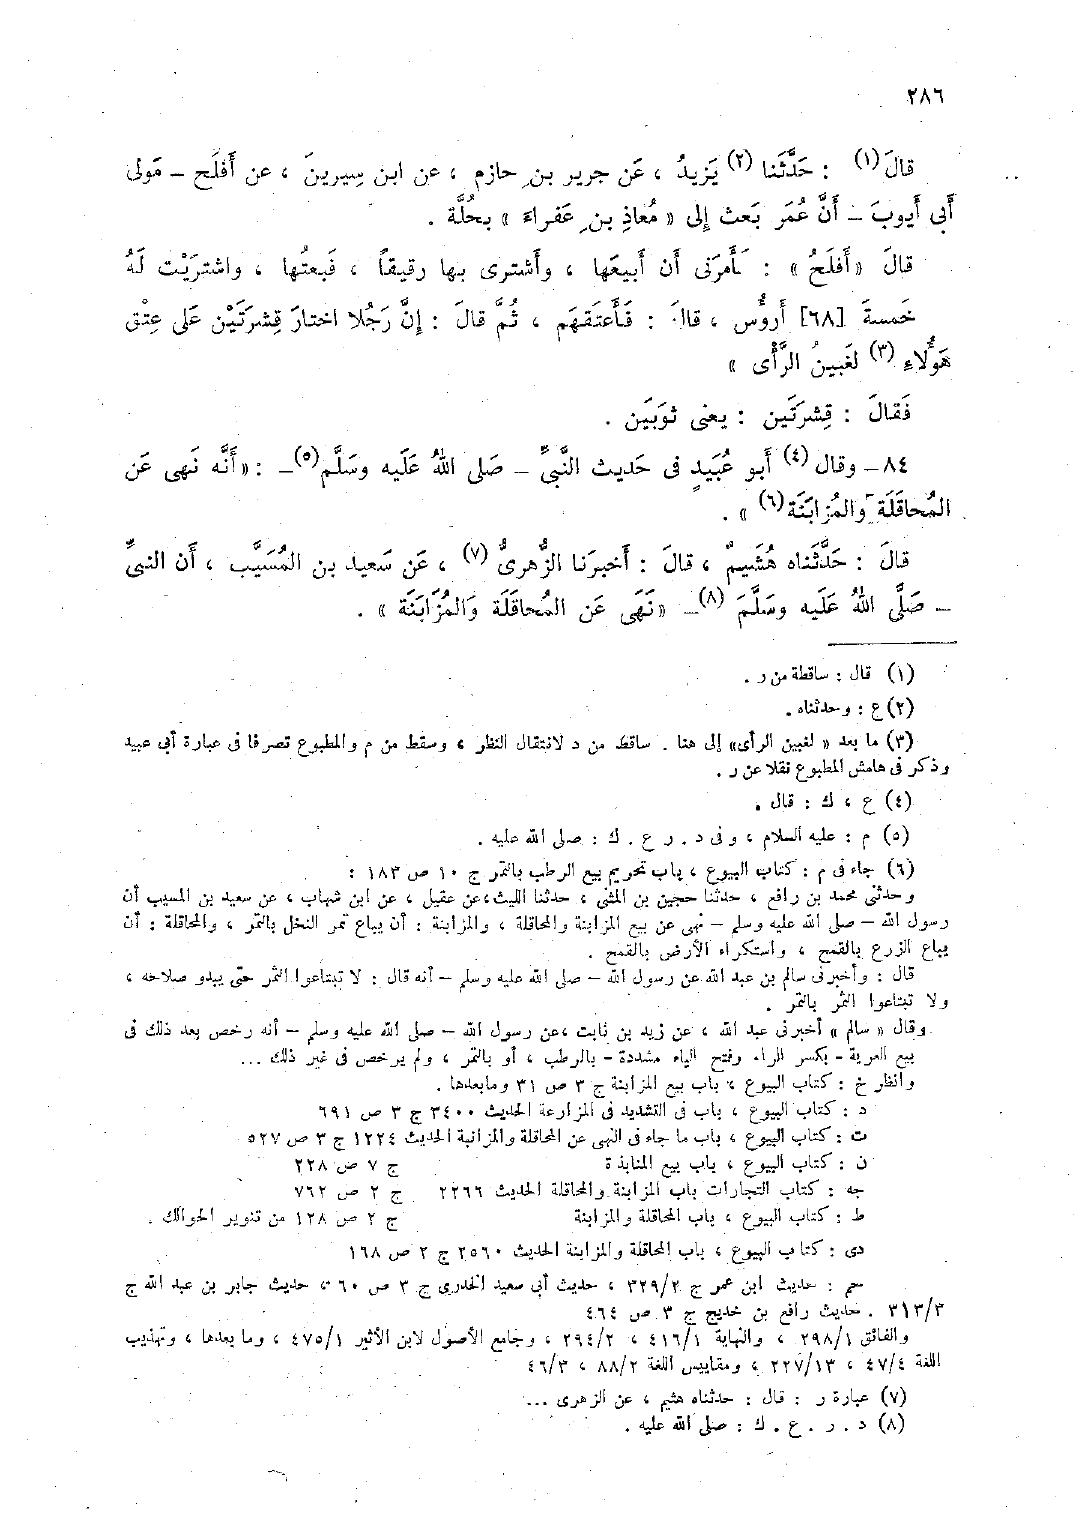 ٢٨٦
قالَ (١) : حَدَّثَنا (٢) يَزيدُ ، عَن جرير بنِ حازم ، عن ابن سِيرينَ ، عن أَفلَح – مَولى
أَبى أَيوبَ – أَنَّ عُمَر بَعث إلى « مُعاذِ بنِ عَفراءَ » بحُلَّة .
قالَ «أَفلَحُ» : فَأَمرَنى أَن أَبيعَها ، وأَشترى بها رقيقاً ، فَبعتُها ، واشترَيْت لَهُ
خَمسةَ [٦٨] أَرؤُس ، قالَ : فَأَعتَقهَم ، ثُمَّ قالَ : إنَّ رَجُلا اختارَ قِشرَتَيْن عَلى عِتْق
هَؤُلاءِ (٣) لغَبينُ الرَّأْى »
فَقالَ : قِشرَتَين : يعنى ثوبَين .
٨٤– وقال (٤) أَبو عُبَيدٍ فى حَديث النَّبىِّ – صَلى اللهُ عَلَيه وسَلَّم (٥) – : «أَنَّه نَهى عَن
المُحاقَلَة والمُزابَنَة (٦) » .
قالَ : حَدَّثَناه هُشَيمٌ ، قالَ : أَخبرَنا الزُّهرىُّ (٧) ، عَن سَعيد بن المُسَيَّب ، أَن النبىَّ
– صَلَّى اللهُ عَلَيه وسَلَّمَ (٨) – «نَهَى عَن المُحاقَلَة وَالمُزَابَنَة » .
(١) قال : ساقطة من ر .
(٢) ع : وحدثناه .
(٣) ما بعد « لغبين الرأى» إلى هنا . ساقط من د لانتقال النظر ، وسقط من م والمطبوع تصرفا فى عبارة أبى عبيد
وذكر فى هامش المطبوع نقلا عن ر .
(٤) ع ، ك : قال .
(٥) م : عليه السلام ، وفى د . ر ع . ك : صلى الله عليه .
(٦) جاء فى م : كتاب البيوع ، باب تحريم بيع الرطب بالتمر ج ١٠ ص ١٨٣ :
وحدثنى محمد بن رافع ، حدثنا حجين بن المثنى ، حدثنا الليث،عن عقيل ، عن ابن شهاب ، عن سعيد بن المسيب أن
رسول الله – صلى الله عليه وسلم – نهى عن بيع المزابنة والمحاقلة ، والمزابنة : أن يباع ثمر النخل بالتمر ، والمحاقلة : أن
يباع الزرع بالقمح ، واستكراء الأرض بالقمح .
قال : وأخبرنى سالم بن عبد الله عن رسول الله – صلى الله عليه وسلم – أنه قال : لا تبتاعوا الثمر حتى يبدو صلاحه ،
ولا تبتاعوا الثمر بالتمر .
وقال « سالم » أخبرنى عبد الله ، عن زيد بن ثابت ،عن رسول الله – صلى الله عليه وسلم – أنه رخص بعد ذلك فى
بيع العرية – بكسر الراء وفتح الياء مشددة – بالرطب ، أو بالتمر ، ولم يرخص فى غير ذلك ...
وانظر خ : كتاب البيوع ، باب بيع المزابنة ج ٣ ص ٣١ ومابعدها .
د : كتاب البيوع ، باب فى التشديد فى المزارعة الحديث ٣٤٠٠ ج ٣ ص ٦٩١
ت : كتاب البيوع ، باب ما جاء فى النهى عن المحاقلة والمزابنة الحديث ١٢٢٤ ج ٣ ص ٥٢٧
ن : كتاب البيوع ، باب بيع المنابذة ج ٧ ص ٢٢٨
جه : كتاب التجارات باب المزابنة والمحاقلة الحديث ٢٢٦٦ ج ٢ ص ٧٦٢
ط : كتاب البيوع ، باب المحاقلة والمزابنة ج ٢ ص ١٢٨ من تنوير الحوالك .
دى : كتاب البيوع ، باب المحاقلة والمزابنة الحديث ٢٥٦٠ ج ٢ ص ١٦٨
حم : حديث ابن عمر ج ٣٢٩/٢ ، حديث أبى سعيد الخدرى ج ٣ ص ٦٠ ، حديث جابر بن عبد الله ج
٣١٣/٣ . حديث رافع بن خديج ج ٣ ص ٤٦٤
والفائق ٢٩٨/١ ، والنهاية ٤١٦/١ ، ٢٩٤/٢ ، وجامع الأصول لابن الأثير ٤٧٥/١ ، وما بعدها ، وتهذيب
اللغة ٤٧/٤ ، ٢٢٧/١٣ ، ومقاييس اللغة ٨٨/٢ ، ٤٦/٣
(٧) عبارة ر : قال : حدثناه هشيم ، عن الزهرى ...
(٨) د . ر . ع . ك : صلى الله عليه .